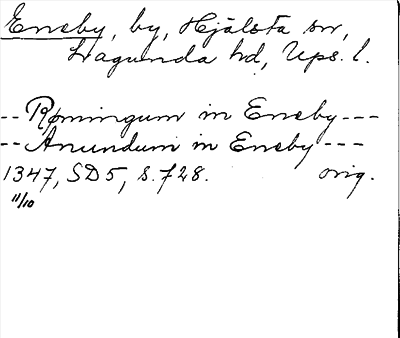 Eneby, by, Hjälsta sn,
Lagunda hd, Ups. l.
-- Romingum in Eneby ---
-- Anundum in Eneby ---
1347, SD5, s. 728. orig.
11/10